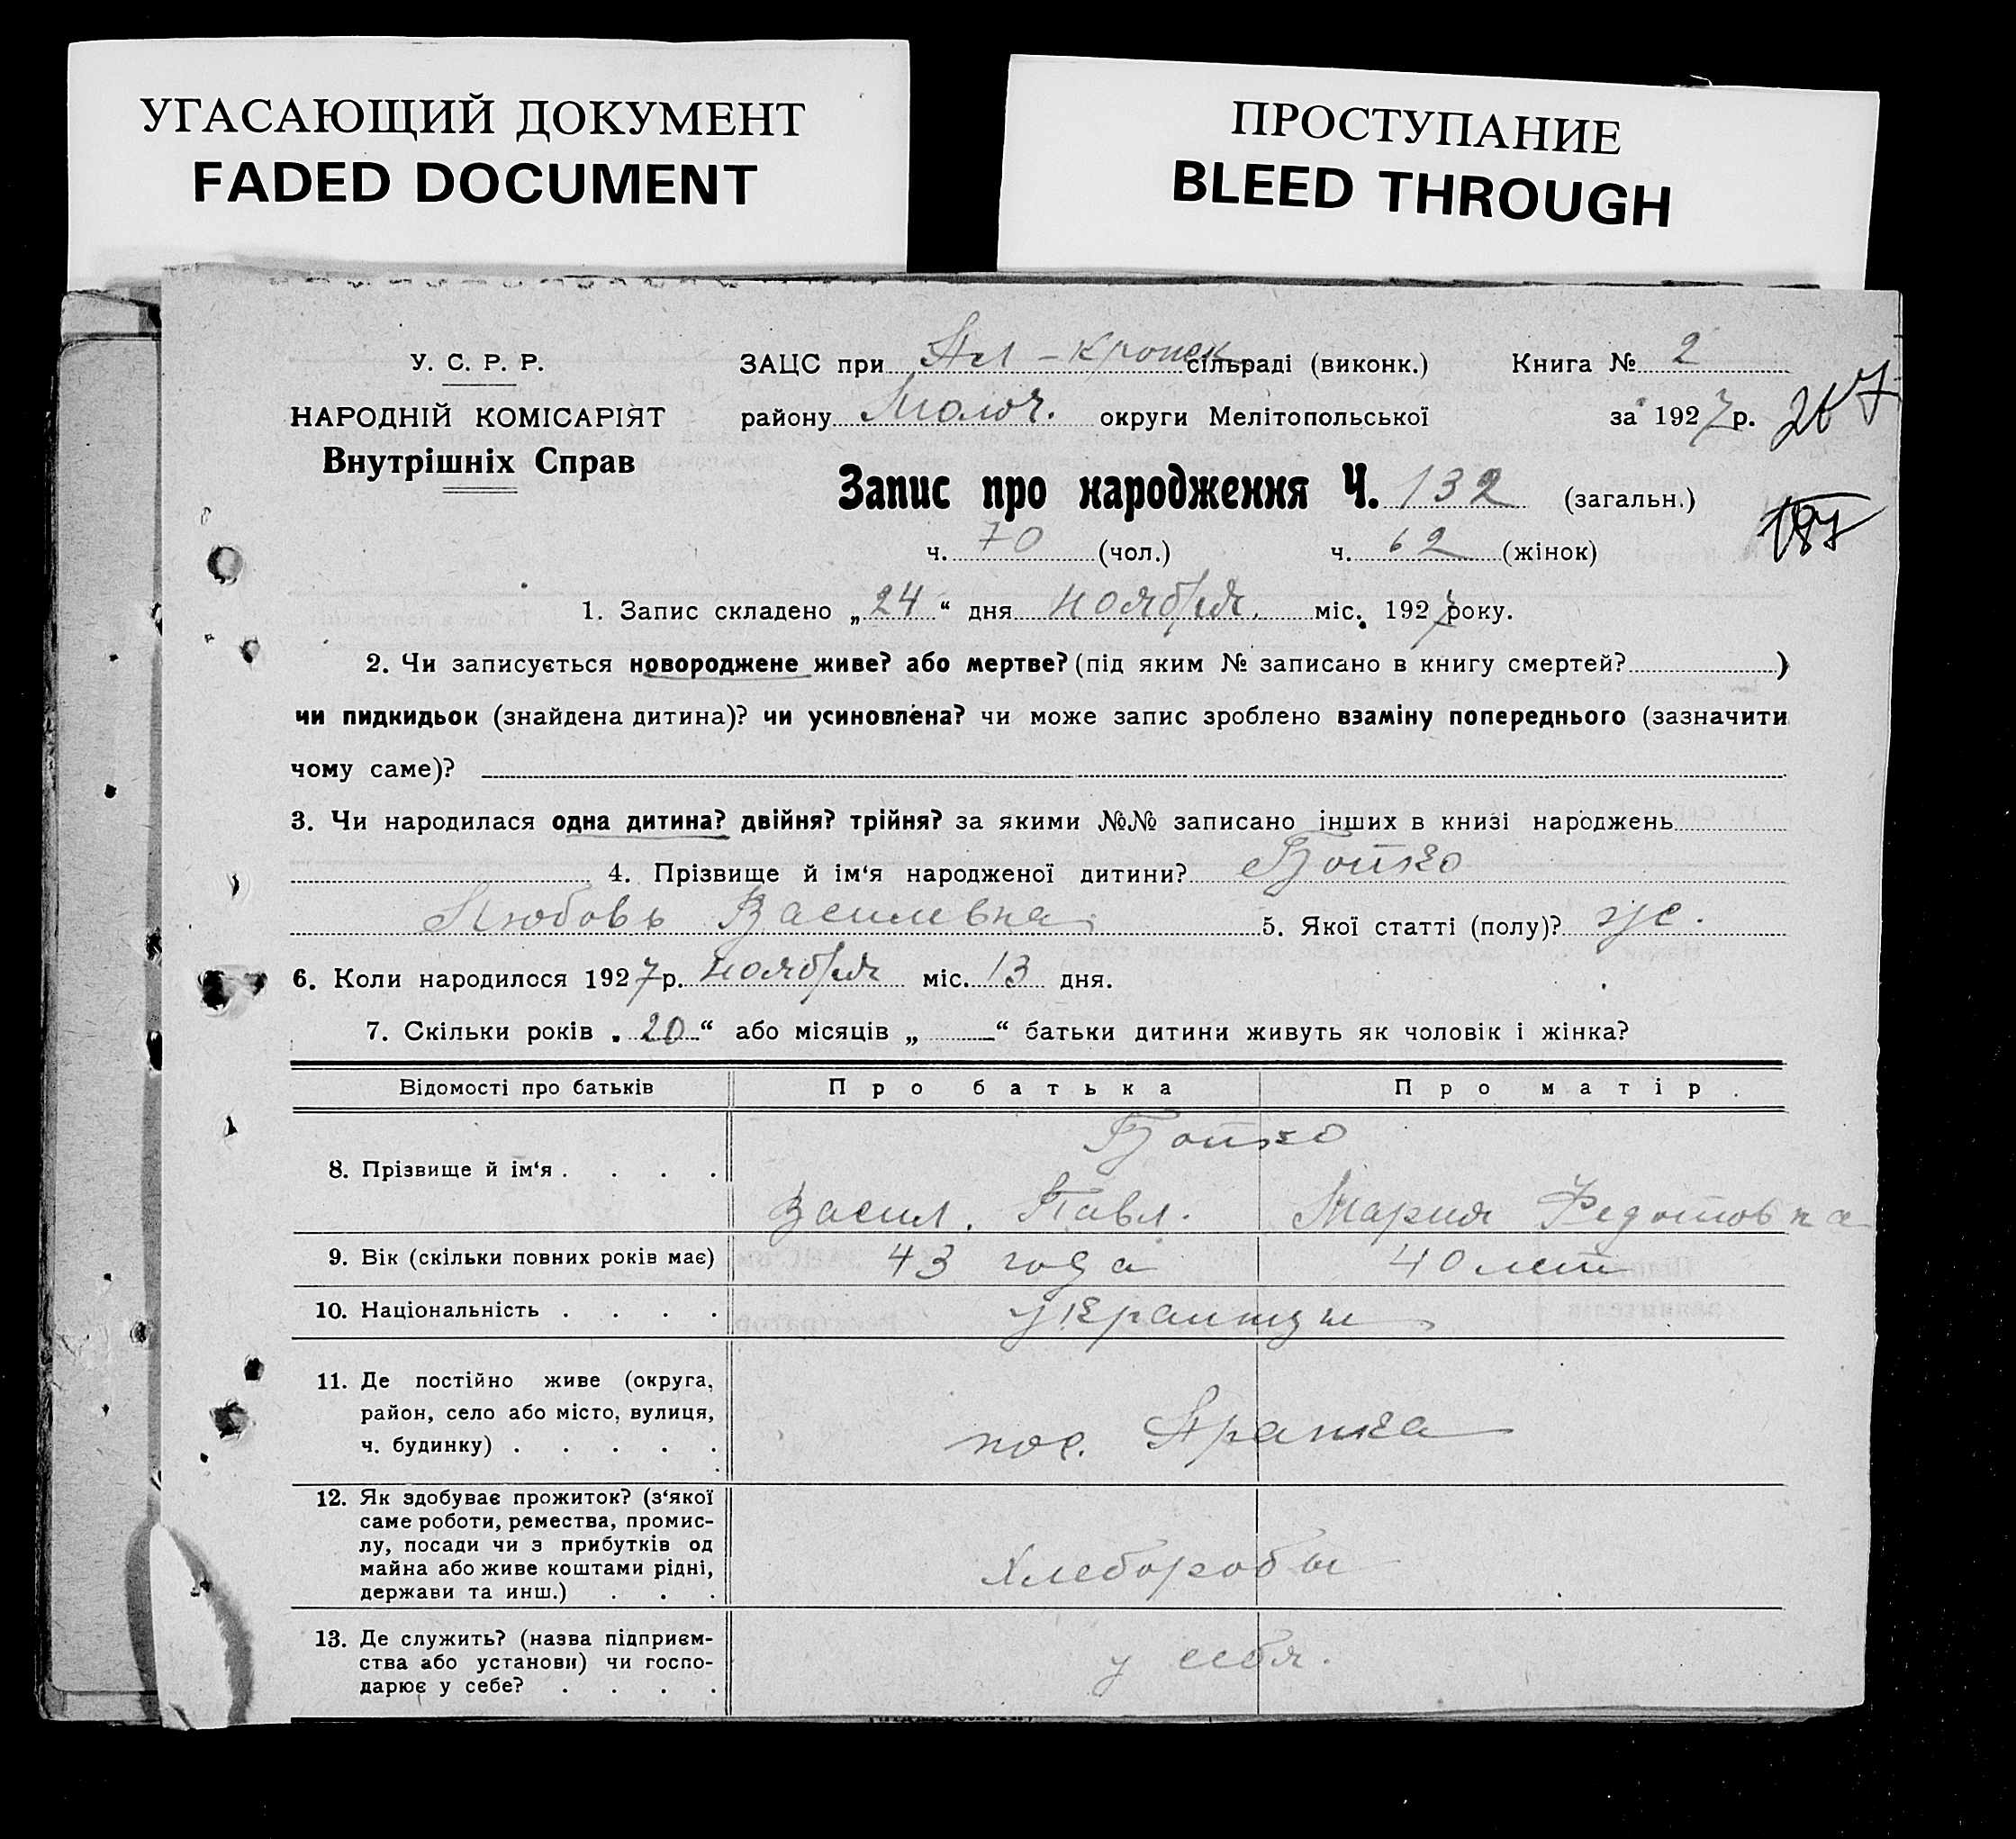 УГАСАЮЩИЙ ДОКУМЕНТ
FADED DOCUMENT
ПРОСТУПАНИЕ
BLEED THROUGH
У. С. Р. Р.
НАРОДНІЙ КОМІСАРІЯТ
Внутрішніх Справ
ЗАЦС при Ал - Кропск сільраді (виконк.) Книга № 2
району Молоч. округи Мелітопольської за 1927 р.
267
Запис про народження Ч. 132 (загальн.)
187
ч. 70 (чол.) ч. 62 (жінок)
1. Запис складено „24“ дня ноября. міс. 1927 року.
2. Чи записується новороджене живе? або мертве? (під яким № записано в книгу смертей? )
чи пидкидьок (знайдена дитина)? чи усиновлена? чи може запис зроблено взаміну попереднього (зазначити
чому саме)?
3. Чи народилася одна дитина? двійня? трійня? за якими №№ записано інших в книзі народжень
4. Прізвище й ім‘я народженої дитини? Бойко
Любовь Василевна 5. Якої статті (полу)? ж.
6. Коли народилося 1927 р. ноября міс. 13 дня.
7. Скільки років „20“ або місяців „ “ батьки дитини живуть як чоловік і жінка?
Відомості про батьків Про батька Про матір
Бойко
8. Прізвище й ім‘я . . . .
Васил. Павл. Мария Федотовна
9. Вік (скільки повних років має) 43 года 40 лет
10. Національність . . . . украинцы
11. Де постійно живе (округа,
район, село або місто, вулиця,
ч. будинку) . . . . . пос. Аранка
12. Як здобуває прожиток? (з‘якої
саме роботи, ремества, промис-
лу, посади чи з прибутків од
майна або живе коштами рідні,
держави та инш.) . . . Хлеборобы
13. Де служить? (назва підприєм-
ства або установи) чи госпо-
дарює у себе? . . . . у себя.